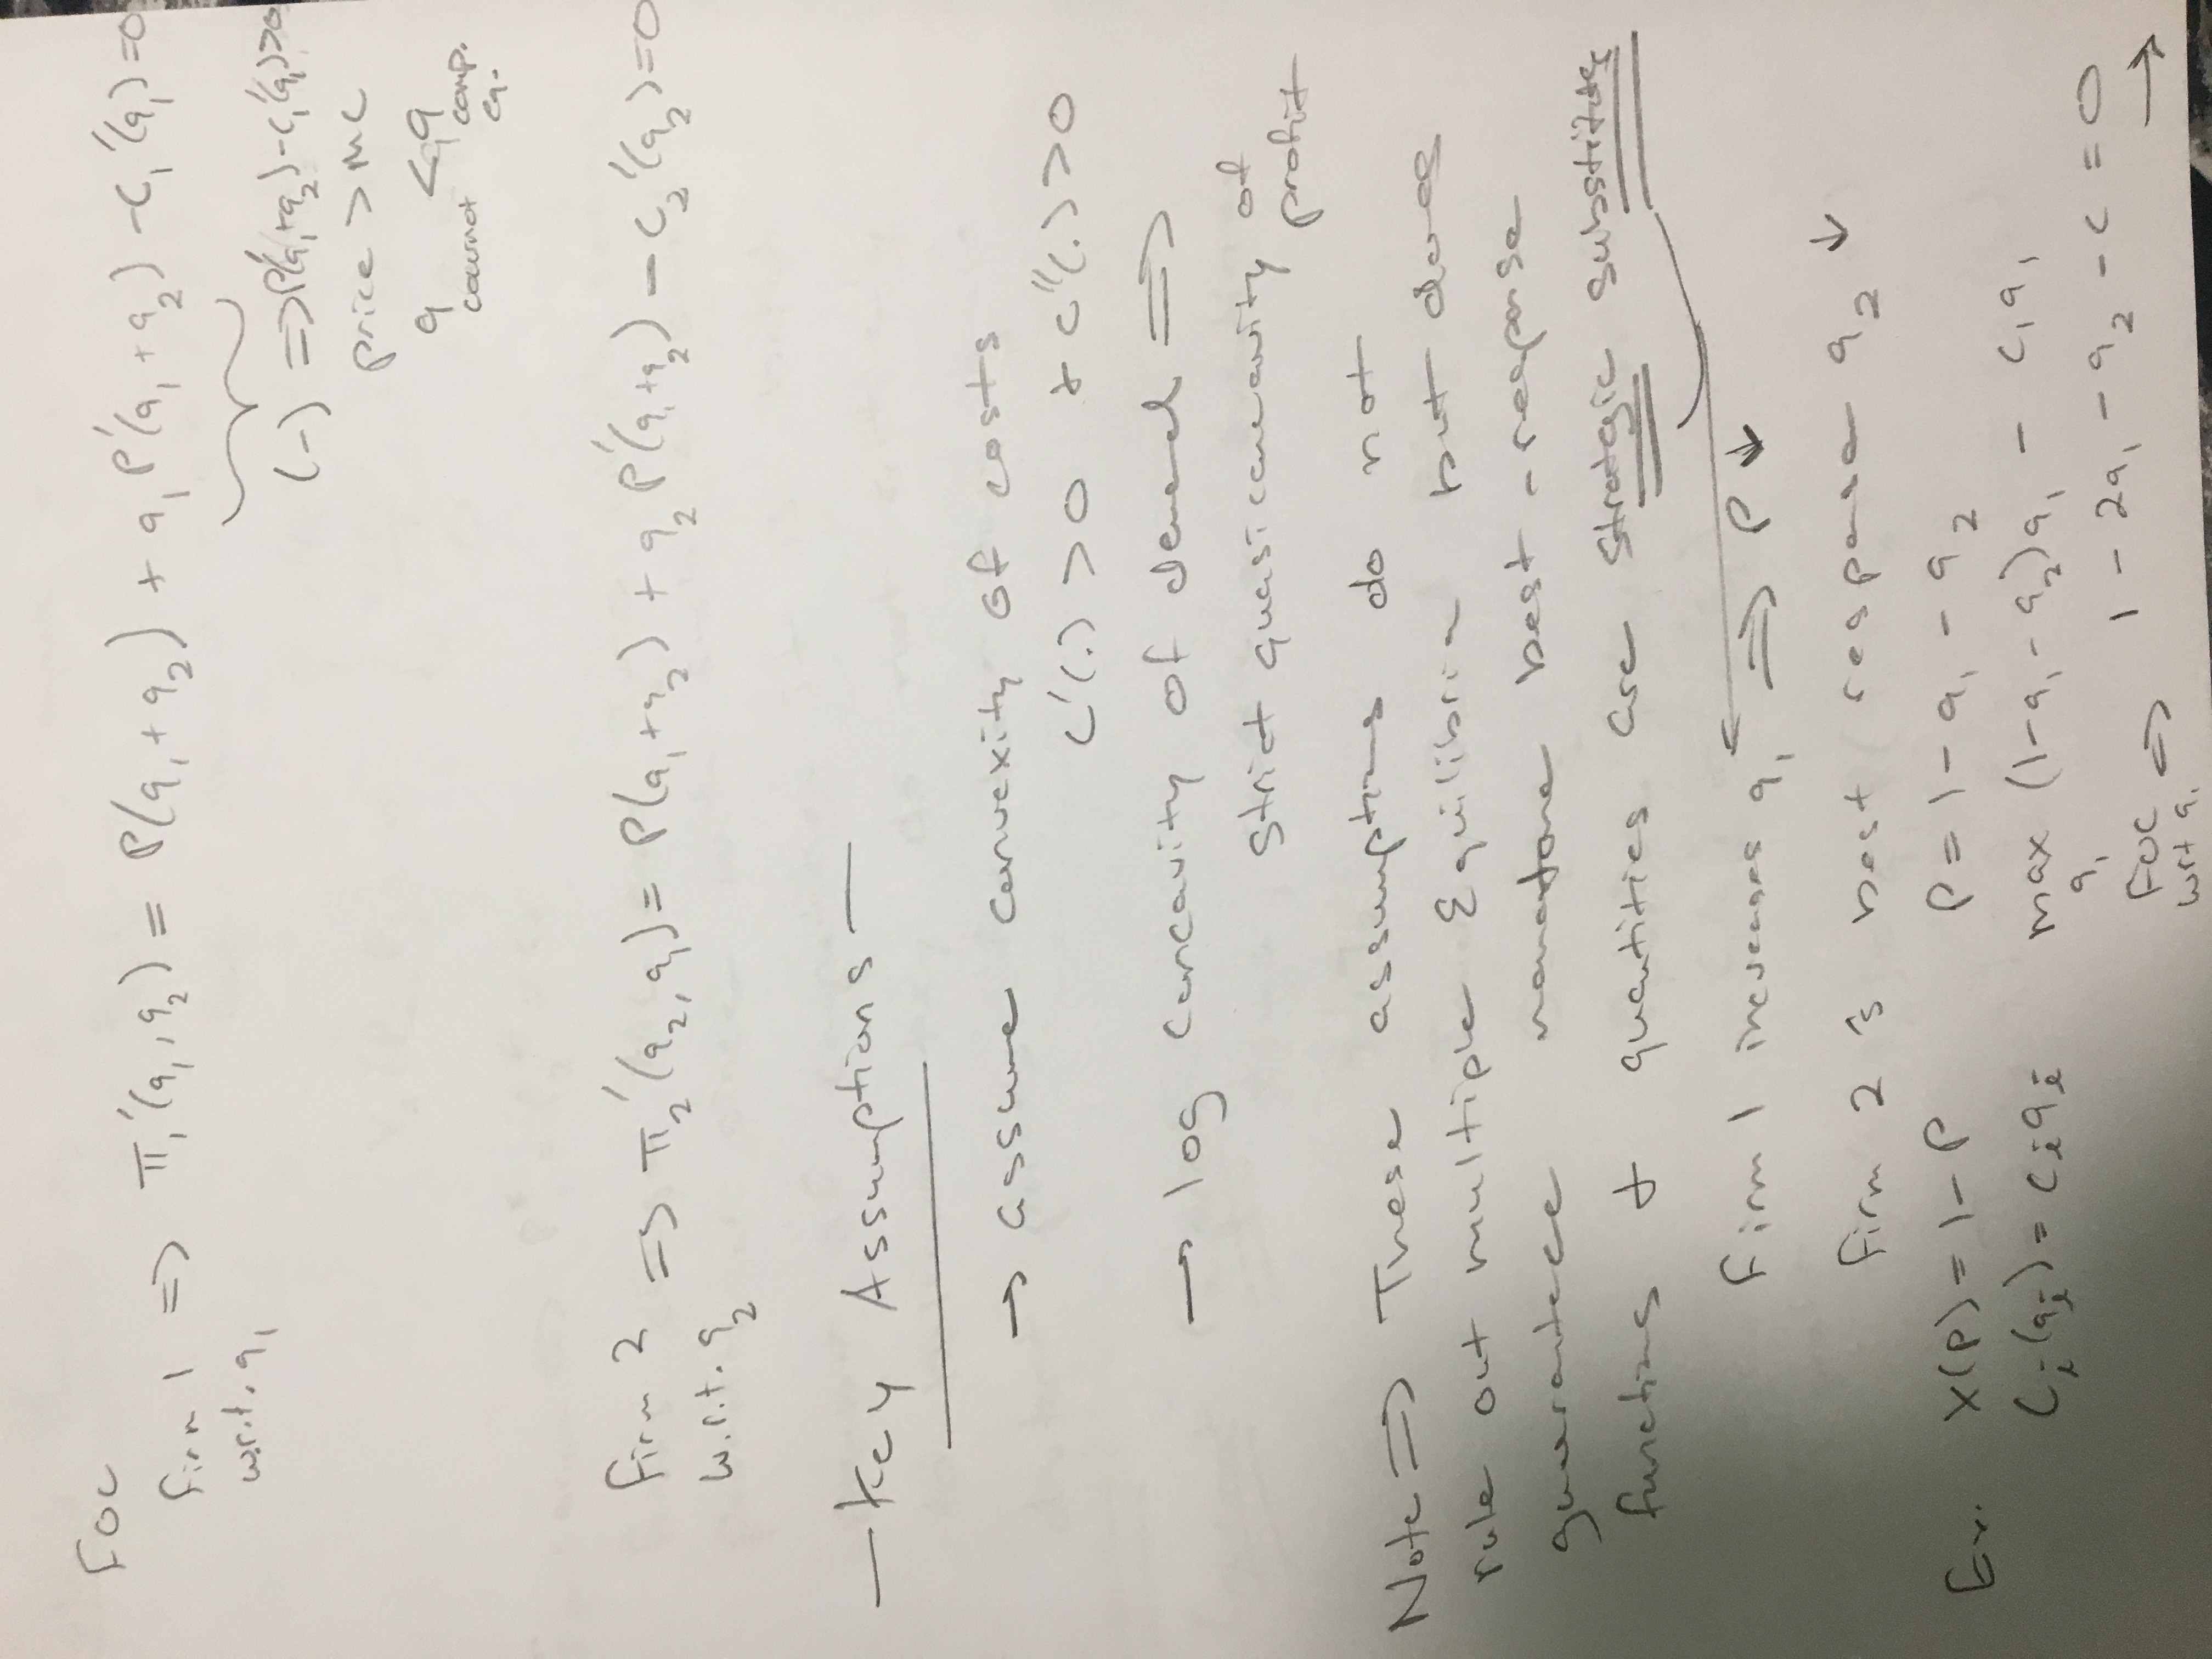 FOC
firm 1 => π₁'(q₁, q₂) = P(q₁ + q₂) + q₁ P'(q₁ + q₂) - C₁'(q₁) = 0
w.r.t. q₁
(-) => P'(q₁+q₂) - C₁'(q₁) > 0
price > MC
q cournot < q comp. eq.
firm 2 => π₂'(q₂, q₁) = P(q₁+q₂) + q₂ P'(q₁+q₂) - C₂'(q₂) = 0
w.r.t. q₂
- Key Assumptions -
→ assume convexity of costs
C'(.) > 0 & C''(.) > 0
→ log concavity of demand =>
strict quasiconcavity of
profit
Note => These assumptions do not
rule out multiple Equilibria but does
guarantee monotone best-response
functions & quantities are strategic substitutes
firm 1 increases q₁ => P ↓
firm 2's best response q₂ ↓
Ex. X(P) = 1 - P P = 1 - q₁ - q₂
C_i(q_i) = c_i q_i max (1 - q₁ - q₂)q₁ - C₁q₁
q₁
FOC => 1 - 2q₁ - q₂ - c = 0
wrt q₁ →